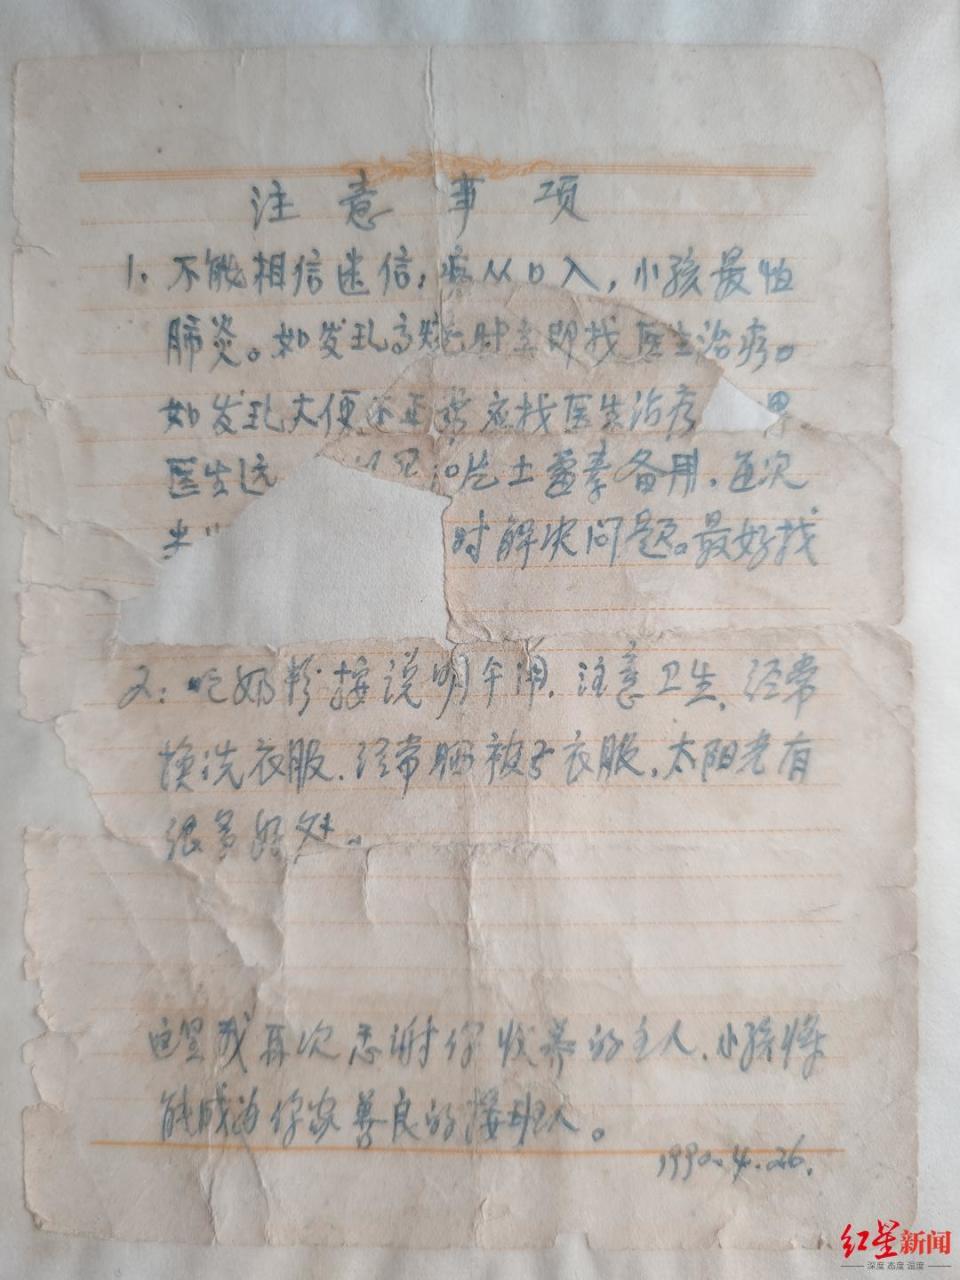 注意事项
1. 不能相信迷信，病从口入，小孩最怕
肺炎。如发现高烧时立即找医生治疗。
如发现大便不正常应找医生治疗
医生远 片土霉素备用，每次
时解决问题。最好找
2：吃奶粉按说明午用，注意卫生，经常
换洗衣服，经常晒被子衣服，太阳光有
很多好处。
这里我再次感谢你收养的主人，小孩将
能成为你家善良的接班人。
1990.4.26.
红星新闻
深度 态度 温度